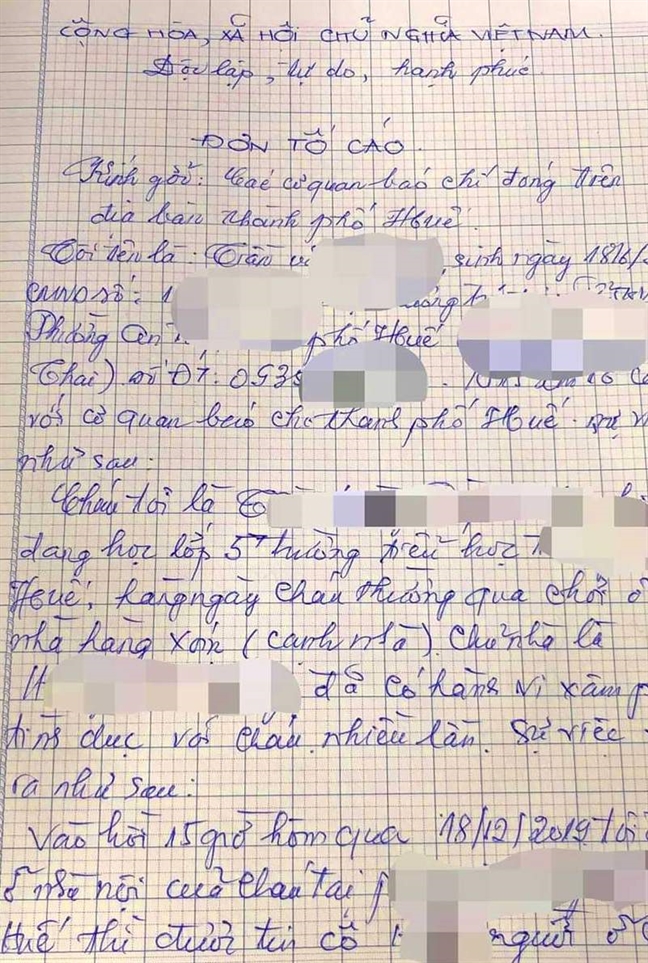 CỘNG HÒA, XÃ HỘI CHỦ NGHĨA VIỆT NAM.
Độc lập, tự do, hạnh phúc.
ĐƠN TỐ CÁO.
Kính gởi: Các cơ quan báo chí đóng trên
địa bàn thành phố Huế.
Tôi tên là: Trần, sinh ngày 18/6/
CMND số: 1
Phường An phố Huế
Thai) số ĐT: 0935
với cơ quan báo chí thành phố Huế. sự
như sau:
Cháu tôi là
đang học lớp 5 trường tiểu học
Huế, hàng ngày cháu thường qua chơi ở
nhà hàng xóm (cạnh nhà). Chủ nhà là
H đã có hành vi xâm
tình dục với cháu nhiều lần. Sự việc
ra như sau:
Vào hồi 15 giờ hôm qua 18/12/2019 tôi
ở nhà nội của cháu tại
Huế thì được tin có người ở